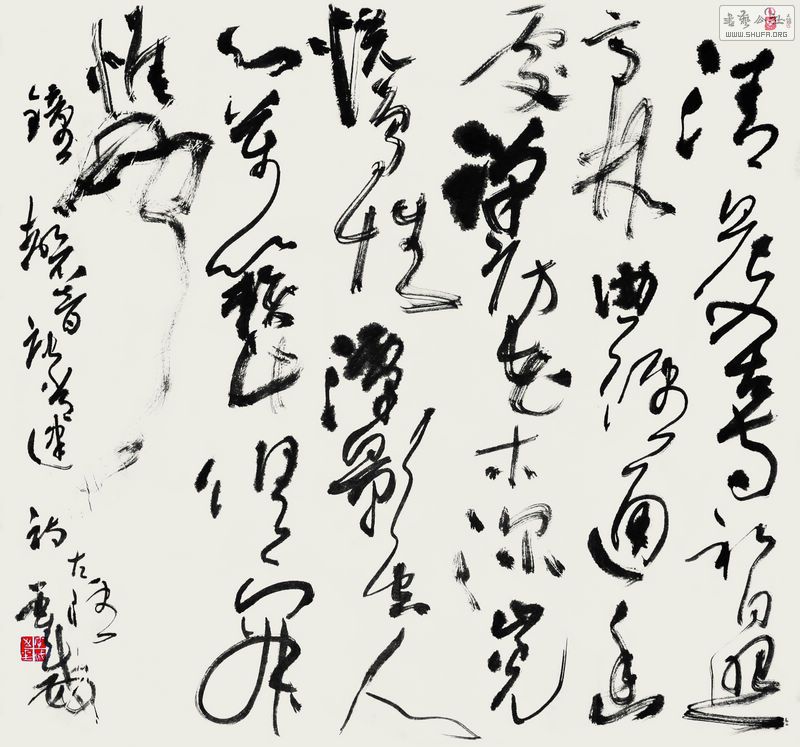 書藝公社
WWW.SHUFA.ORG
清晨入古寺初日照
高林曲徑通幽
處禪房花木深山光
悦鳥性潭影空人
心萬籟此俱寂
惟餘
鐘磬音常建
詩